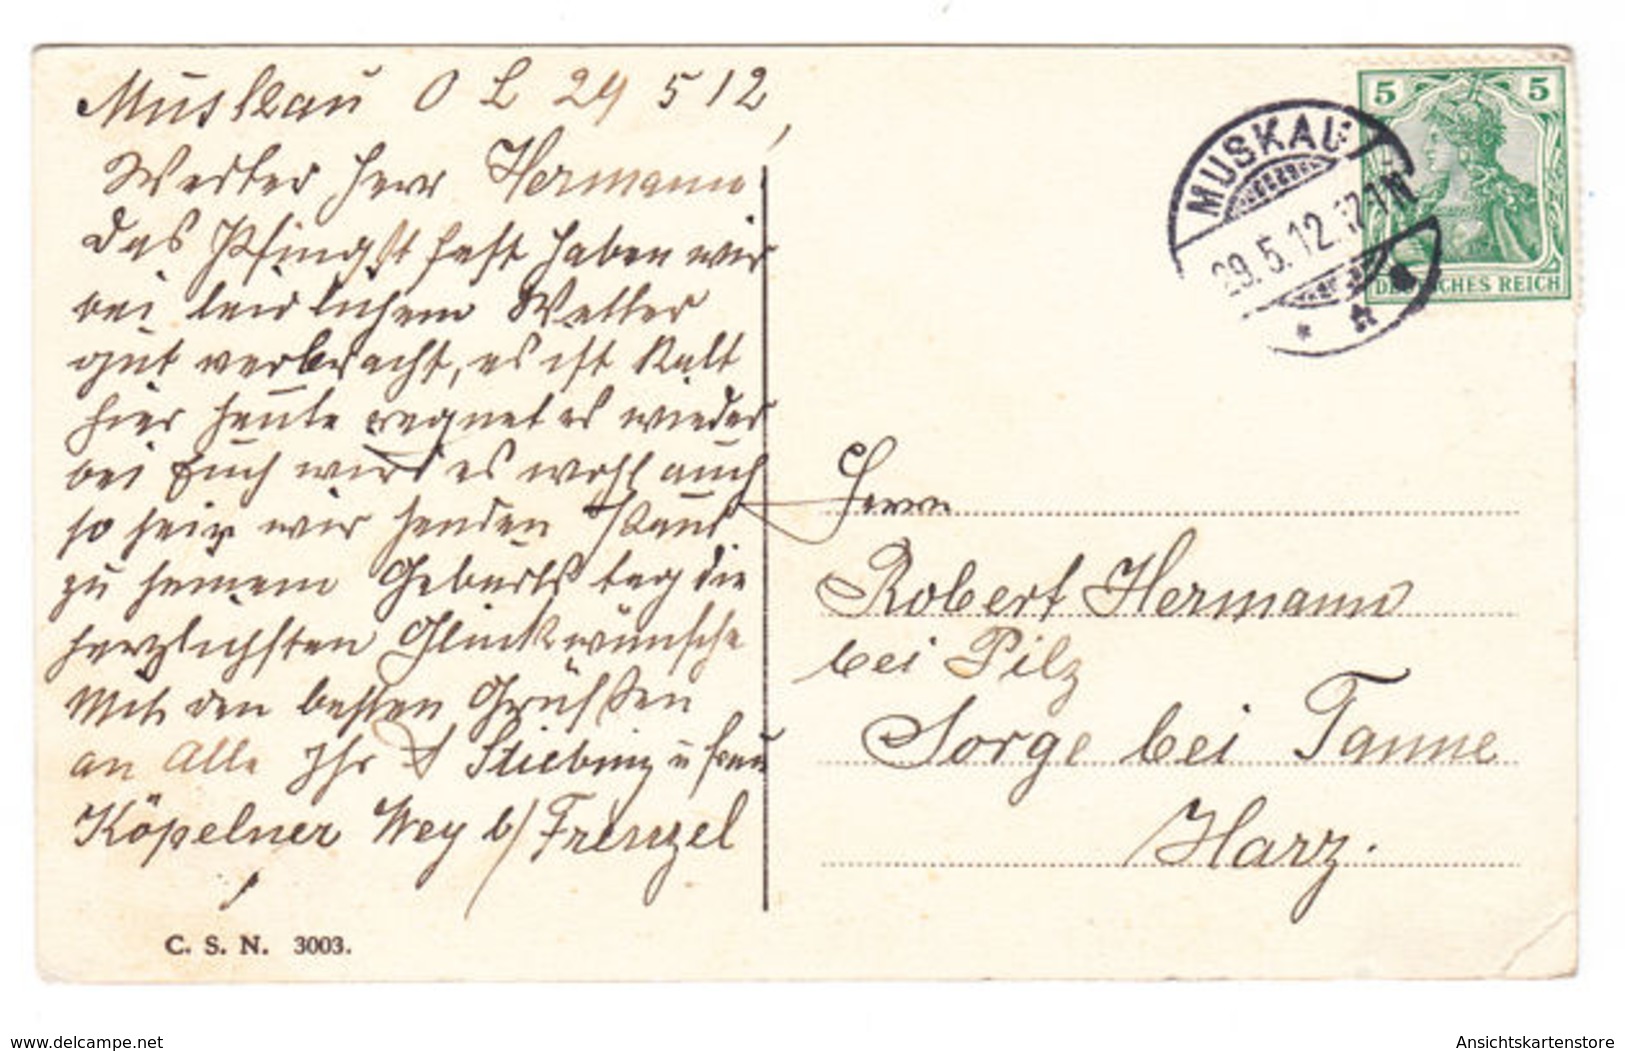 Muskau O L 29 5 12,
Werter Herr Hermann.
Das Pfingstfest haben wir
bei leidlichem Wetter
gut verbracht, es ist kalt
hier heute regnet es wieder
bei Euch wird es wohl auch
so sein wir senden
zu seinem Geburtstag die
herzlichsten Glückwünsche
Mit den besten Grüßen
an Alle Ihr A Stiebing u Frau
Köpelner Weg b/ Frenzel
C. S. N. 3003.
MUSKAU
29.5.12.
5 5
DEUTSCHES REICH
Herrn
Robert Hermann
bei Pilz
Sorge bei Tanne
Harz.
www.delcampe.net
Ansichtskartenstore